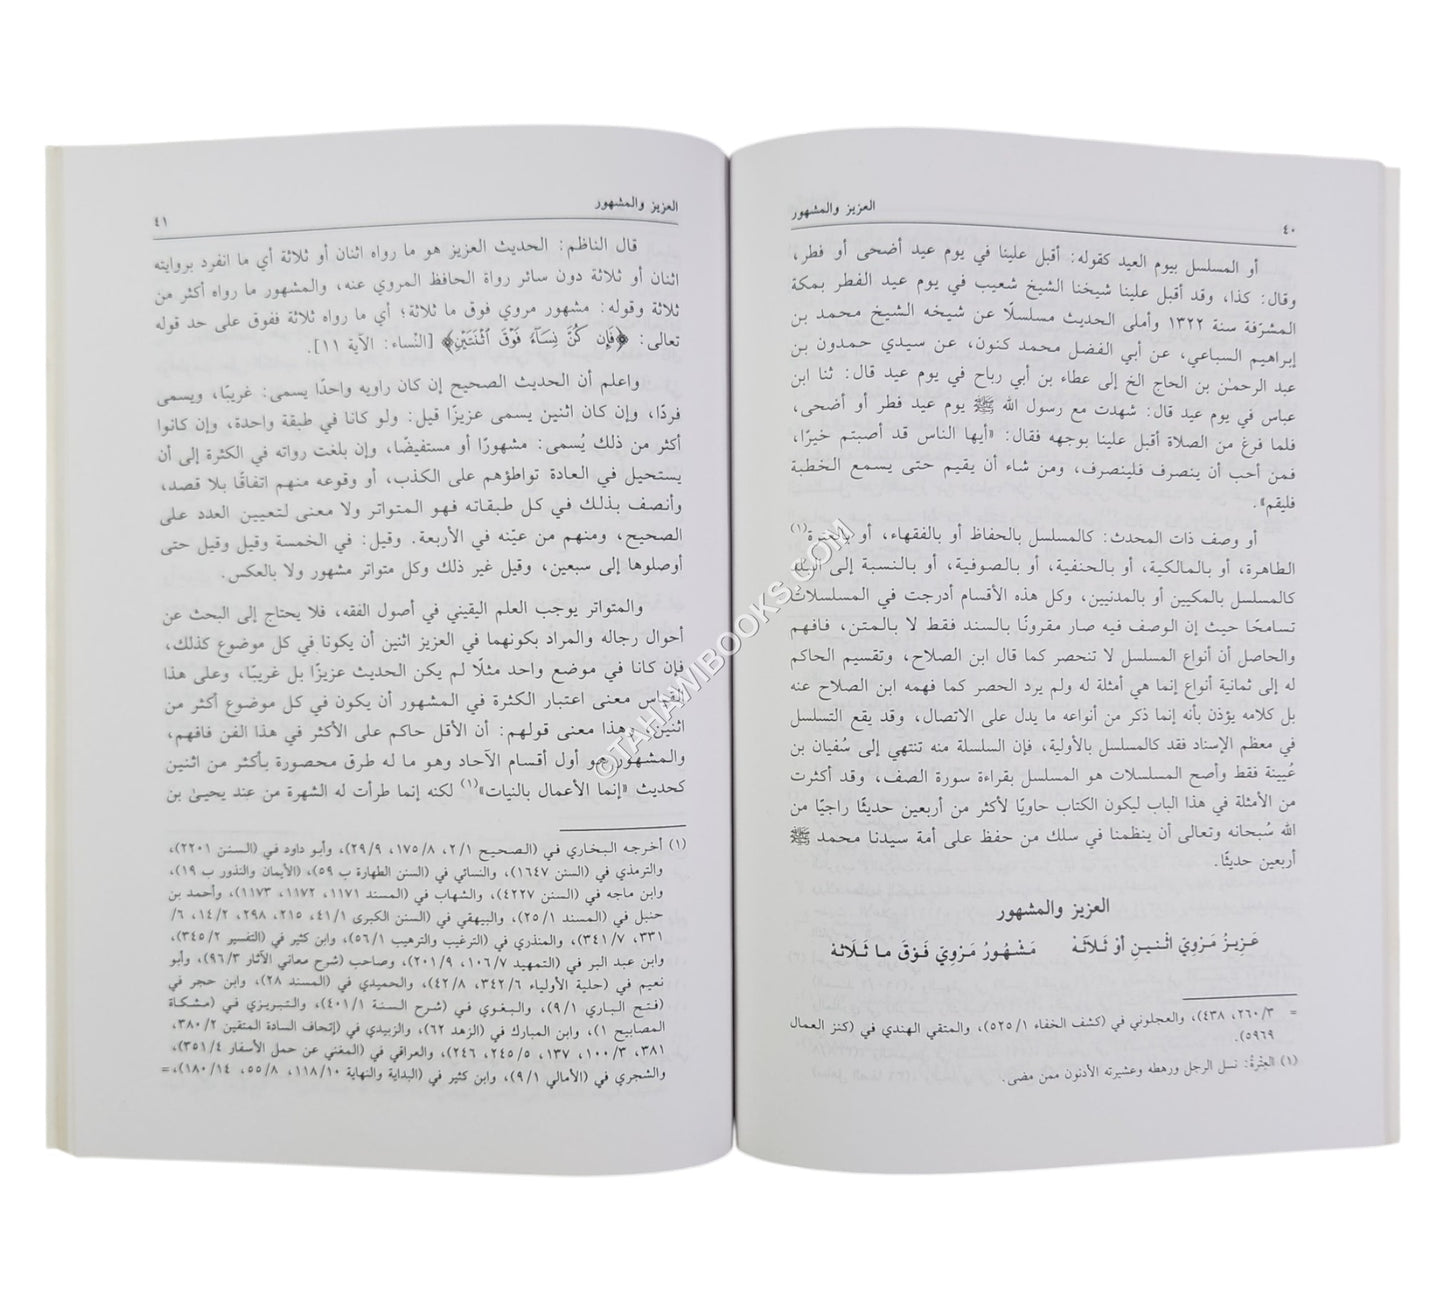 ٤٠
العزيز والمشهور
أو المسلسل بيوم العيد كقوله: أقبل علينا في يوم عيد أضحى أو فطر،
وقال: كذا، وقد أقبل علينا شيخنا الشيخ شعيب في يوم عيد الفطر بمكة
المشرّفة سنة ١٣٢٢ وأملى الحديث مسلسلًا عن شيخه الشيخ محمد بن
إبراهيم السباعي، عن أبي الفضل محمد كنون، عن سيدي حمدون بن
عبد الرحمٰن بن الحاج الخ إلى عطاء بن أبي رباح في يوم عيد قال: ثنا ابن
عباس في يوم عيد قال: شهدت مع رسول الله ﷺ يوم عيد فطر أو أضحى،
فلما فرغ من الصلاة أقبل علينا بوجهه فقال: «أيها الناس قد أصبتم خيرًا،
فمن أحب أن ينصرف فلينصرف، ومن شاء أن يقيم حتى يسمع الخطبة
فليقم».
أو وصف ذات المحدث: كالمسلسل بالحفاظ أو بالفقهاء، أو بالعترة(١)
الطاهرة، أو بالمالكية، أو بالحنفية، أو بالصوفية، أو بالنسبة إلى البلد
كالمسلسل بالمكيين أو بالمدنيين، وكل هذه الأقسام أدرجت في المسلسلات
تسامحًا حيث إن الوصف فيه صار مقرونًا بالسند فقط لا بالمتن، فافهم
والحاصل أن أنواع المسلسل لا تنحصر كما قال ابن الصلاح، وتقسيم الحاكم
له إلى ثمانية أنواع إنما هي أمثلة له ولم يرد الحصر كما فهمه ابن الصلاح عنه
بل كلامه يؤذن بأنه إنما ذكر من أنواعه ما يدل على الاتصال، وقد يقع التسلسل
في معظم الإسناد فقد كالمسلسل بالأولية، فإن السلسلة منه تنتهي إلى سُفيان بن
عُيينة فقط وأصح المسلسلات هو المسلسل بقراءة سورة الصف، وقد أكثرت
من الأمثلة في هذا الباب ليكون الكتاب حاويًا لأكثر من أربعين حديثًا راجيًا من
الله سُبحانه وتعالى أن ينظمنا في سلك من حفظ على أمة سيدنا محمد ﷺ
أربعين حديثًا.
العزيز والمشهور
عَزِيزُ مَرْوِيّ اثْنَينِ أوْ ثَلَاثَهْ مَشْهُورُ مَرْوِيّ فَوْقَ ما ثَلَاثَهْ
= ٢٦٠/٣، ٤٣٨)، والعجلوني في (كشف الخفاء ٥٢٥/١)، والمتقي الهندي في (كنز العمال
٥٩٦٩).
(١) العِتْرةُ: نسل الرجل ورهطه وعشيرته الأدنون ممن مضى.
العزيز والمشهور
٤١
قال الناظم: الحديث العزيز هو ما رواه اثنان أو ثلاثة أي ما انفرد بروايته
اثنان أو ثلاثة دون سائر رواة الحافظ المروي عنه، والمشهور ما رواه أكثر من
ثلاثة وقوله: مشهور مروي فوق ما ثلاثة؛ أي ما رواه ثلاثة ففوق على حد قوله
تعالى: ﴿فَإِن كُنَّ نِسَآءً فَوْقَ ٱثْنَتَيْنِ﴾ [النّساء: الآية ١١].
واعلم أن الحديث الصحيح إن كان راويه واحدًا يسمى: غريبًا، ويسمى
فردًا، وإن كان اثنين يسمى عزيزًا قيل: ولو كانا في طبقة واحدة، وإن كانوا
أكثر من ذلك يُسمى: مشهورًا أو مستفيضًا، وإن بلغت رواته في الكثرة إلى أن
يستحيل في العادة تواطؤهم على الكذب، أو وقوعه منهم اتفاقًا بلا قصد،
وأنصف بذلك في كل طبقاته فهو المتواتر ولا معنى لتعيين العدد على
الصحيح، ومنهم من عيّنه في الأربعة. وقيل: في الخمسة وقيل وقيل حتى
أوصلوها إلى سبعين، وقيل غير ذلك وكل متواتر مشهور ولا بالعكس.
والمتواتر يوجب العلم اليقيني في أصول الفقه، فلا يحتاج إلى البحث عن
أحوال رجاله والمراد بكونهما في العزيز اثنين أن يكونا في كل موضوع كذلك،
فإن كانا في موضع واحد مثلًا لم يكن الحديث عزيزًا بل غريبًا، وعلى هذا
القياس معنى اعتبار الكثرة في المشهور أن يكون في كل موضوع أكثر من
اثنين، وهذا معنى قولهم: أن الأقل حاكم على الأكثر في هذا الفن فافهم،
والمشهور هو أول أقسام الآحاد وهو ما له طرق محصورة بأكثر من اثنين
كحديث «إنما الأعمال بالنيات»(١) لكنه إنما طرأت له الشهرة من عند يحيىٰ بن
(١) أخرجه البخاري في (الصحيح ٢/١، ١٧٥/٨، ٢٩/٩)، وأبو داود في (السنن ٢٢٠١)،
والترمذي في (السنن ١٦٤٧)، والنسائي في (السنن الطهارة ب ٥٩)، (الأيمان والنذور ب ١٩)،
وابن ماجه في (السنن ٤٢٢٧)، والشهاب في (المسند ١١٧١، ١١٧٢، ١١٧٣)، وأحمد بن
حنبل في (المسند ٢٥/١)، والبيهقي في (السنن الكبرى ٤١/١، ٢١٥، ٢٩٨، ١٤/٢، ٦/
٣٣١، ٣٤١/٧)، والمنذري في (الترغيب والترهيب ٥٦/١)، وابن كثير في (التفسير ٣٤٥/٢)،
وابن عبد البر في (التمهيد ١٠٦/٧، ٢٠١/٩)، وصاحب (شرح معاني الآثار ٩٦/٣)، وأبو
نعيم في (حلية الأولياء ٣٤٢/٦، ٤٢/٨)، والحميدي في (المسند ٢٨)، وابن حجر في
(فتح الباري ٩/١)، والبغوي في (شرح السنة ٤٠١/١)، والتبريزي في (مشكاة
المصابيح ١)، وابن المبارك في (الزهد ٦٢)، والزبيدي في (إتحاف السادة المتقين ٣٨٠/٢،
٣٨١، ١٠٠/٣، ١٣٧، ٢٤٥/٥، ٢٤٦)، والعراقي في (المغني عن حمل الأسفار ٣٥١/٤)،
والشجري في (الأمالي ٩/١)، وابن كثير في (البداية والنهاية ١١٨/١٠، ٥٥/٨، ١٨٠/١٤)،=
©TAHAWIBOOKS.COM